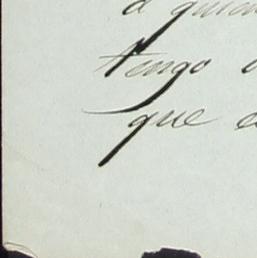 a quien
tengo
que